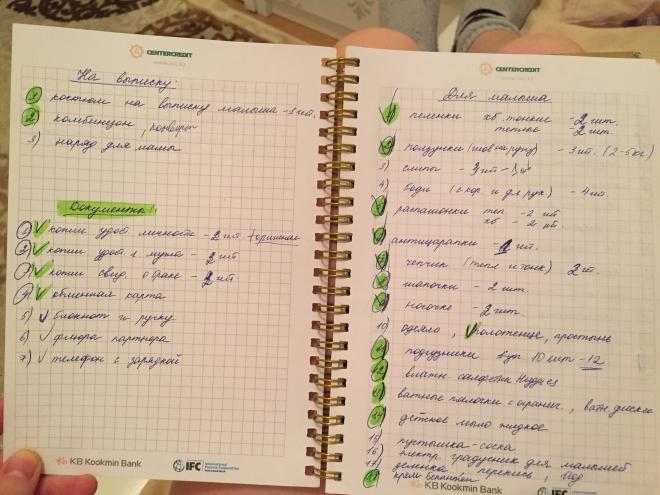 CENTERCREDIT
На выписку:
1 костюм на выписку малыша - 1 шт.
2 комбинзон, конверт
3) наряд для мамы
Документы!
1) копии удост. личности - 2 шт. + оригинал
2) копии удост. л. мужа - 2 шт
3) копии свид. о браке - 2 шт.
4) обменная карта
5) блокнот и ручку
6) флюра партнера
7) телефон с зарядкой
KB Kookmin Bank
IFC International Finance Corporation
CENTERCREDIT
Для малыша
1 пеленки хб. тонкие - 2 шт.
теплые - 2 шт.
2 ползунки (шов наружу) - 3 шт. (2-5кг)
3) слипы - 3 шт
4) боди (с кор. и дл рук) - 4 шт.
распашонки теп - 2 шт
хб - 2 шт.
антицарапки - шт.
чепчик (тепл и тонк) 2 шт.
шапочки - 2 шт.
носочки - 2 шт.
10) одеяло, полотенце, простынь
подгузники 10 шт - 12
влажн. салфетки Huggies
ватные палочки с огранич., ватн диски
детское мыло жидкое
15) пустышка - соска
16) электр. градусник для малышей
17) перекись
крем Бепантен
KB Kookmin Bank
IFC International Finance Corporation